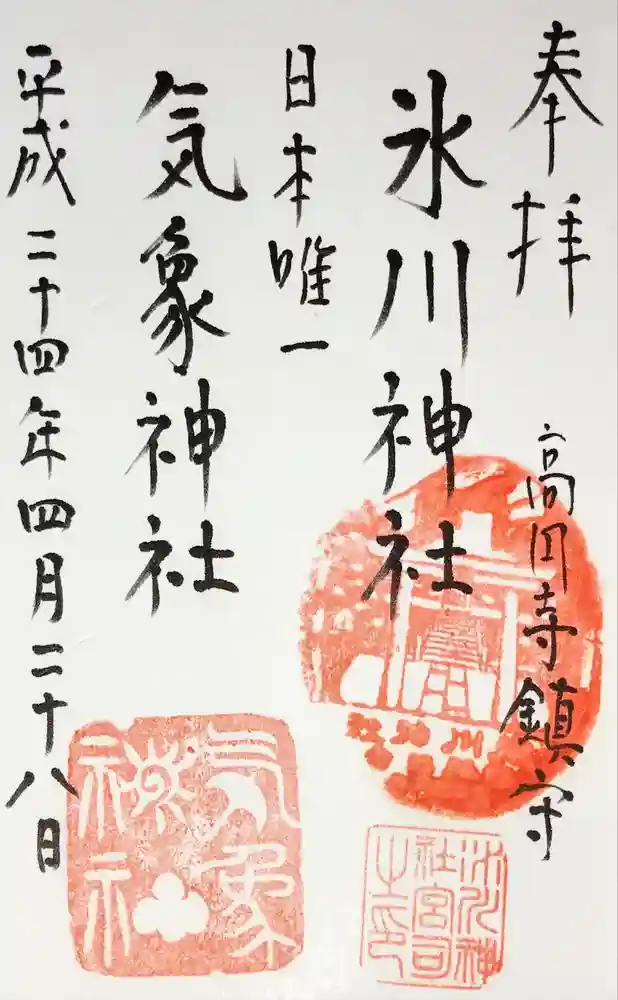 奉拝
高円寺鎮守
氷川神社
日本唯一
気象神社
平成二十四年四月二十八日
氷川神
社宮司
之印
気象
神社